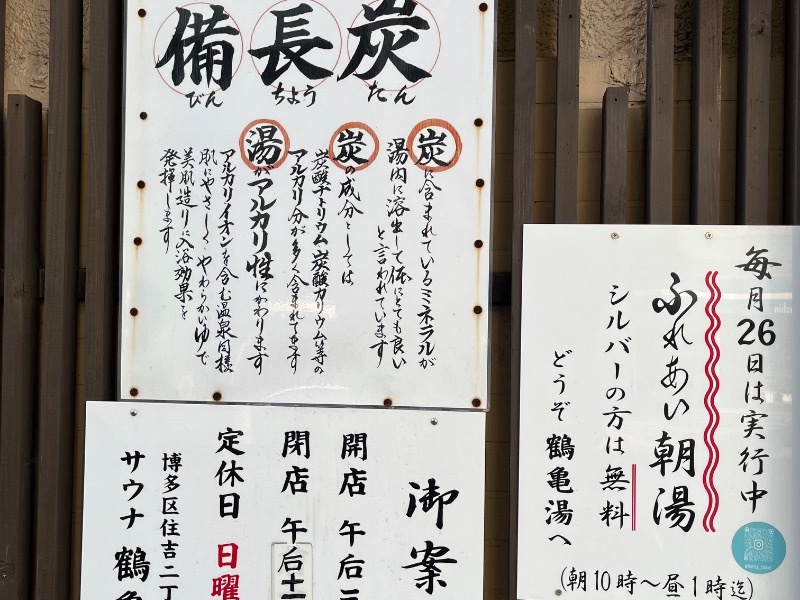 備長炭
びん ちよう たん
炭に含まれているミネラルが
湯内に溶出して体にとても良い
と言われています
炭の成分としては
炭酸ナトリウム、炭酸カリウム等の
アルカリ分が多く含まれてをます
湯がアルカリ性にかわります
アルカリイオンを含む温泉同様
肌にやさしくやわらかいゆで
美肌造りに入浴効果を
発揮します
毎月26日は実行中
ふれあい朝湯
シルバーの方は無料
どうぞ鶴亀湯へ
(朝10時〜昼1時迄)
御案
開店 午后二
閉店 午后十一
定休日 日曜
博多区住吉二丁
サウナ 鶴亀